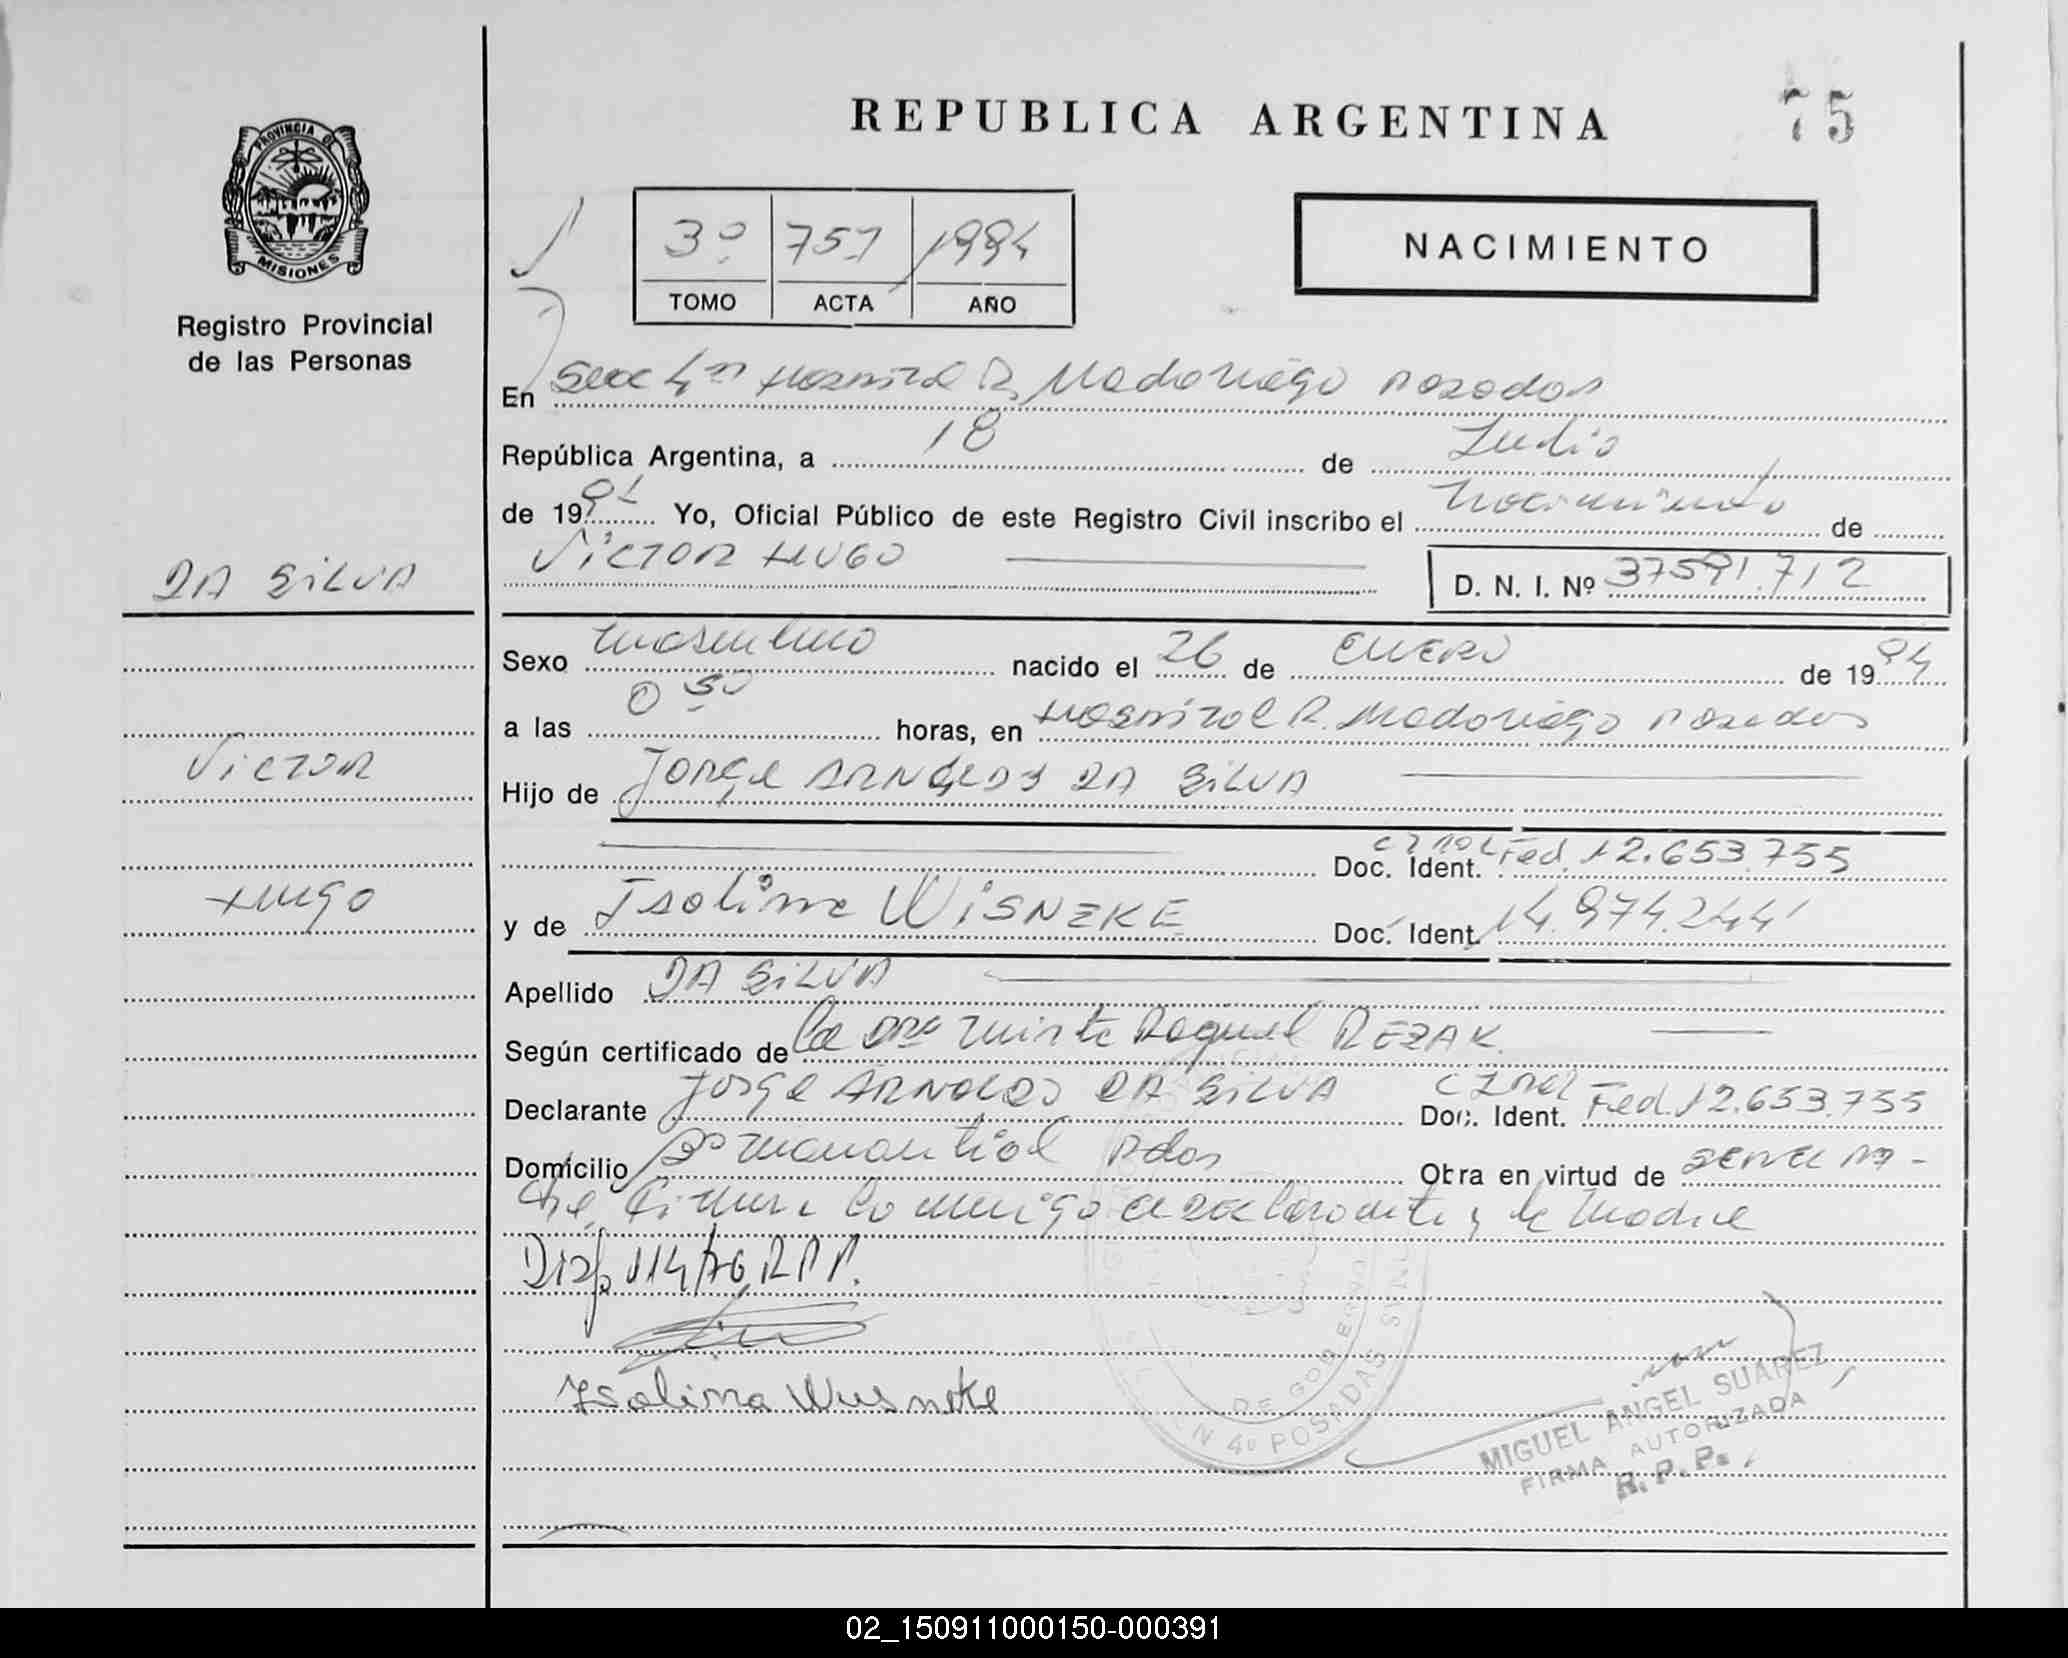 75
REPUBLICA ARGENTINA
PROVINCIA DE
MISIONES
Registro Provincial
de las Personas
3º 757 1994
TOMO ACTA AÑO
NACIMIENTO
En Secc 4ta Hospital R. Madariaga Posadas
República Argentina, a 18 de Julio
de 1994 Yo, Oficial Público de este Registro Civil inscribo el Nacimiento de
VICTOR HUGO
D. N. I. Nº 37591.712
DA SILVA
Sexo masculino nacido el 26 de ENERO de 1994
a las 0 30 horas, en Hospital R. Madariaga Posadas
Victor
Hijo de Jorge ARNOLDO DA SILVA
Doc. Ident. Fed. 12.653.755
Hugo
y de Isolina WISNEKE Doc. Ident. 14.974.244
Apellido DA SILVA
Según certificado de la Raquel REZAK
Declarante Jorge ARNOLDO DA SILVA Doc. Ident. Fed. 12.653.755
Domicilio Bº manantial Pdas Obra en virtud de
firma conmigo el declarante y la Madre
Disp. 114/76 R.P.P.
Isolina Wusneke
DE GOBIERNO
4º POSADAS
MIGUEL ANGEL SUAREZ
FIRMA AUTORIZADA
R. P. P.
02_150911000150-000391